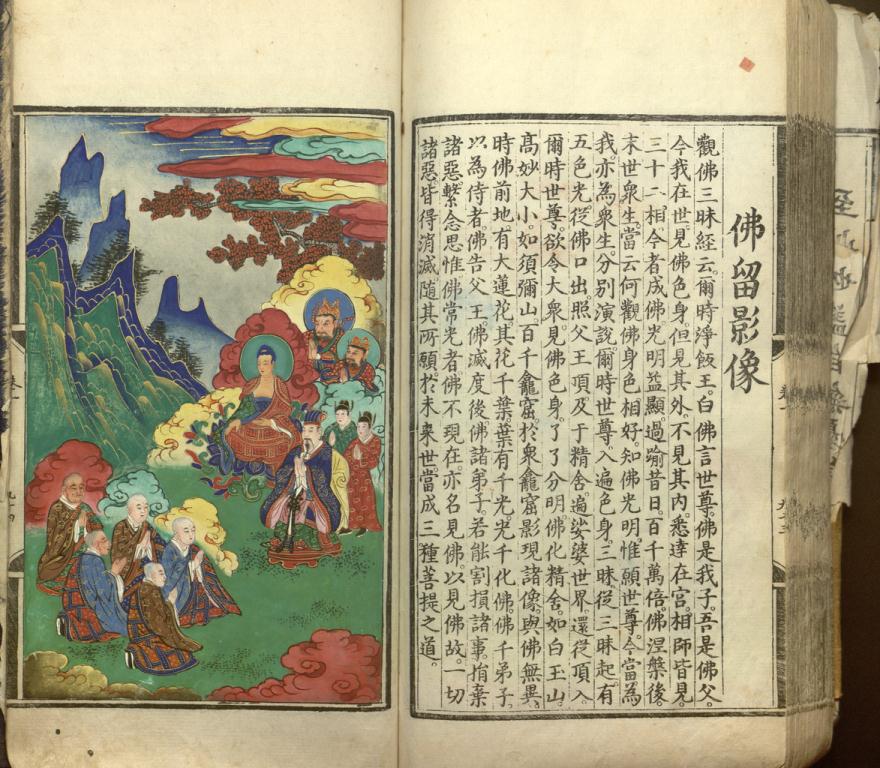 佛留影像
觀佛三昧經云。爾時淨飯王。白佛言世尊。佛是我子。吾是佛父。
今我在世。見佛色身。但見其外。不見其內。悉達在宮。相師皆見。
三十二相。今者成佛。光明益顯。過踰昔日。百千萬倍。佛涅槃後。
末世衆生。當云何觀佛身色相好。知佛光明。惟願世尊。今當為
我。亦為衆生。分別演說。爾時世尊。入遍色身三昧。從三昧起。有
五色光。從佛口出。照父王頂。及于精舍。遍娑婆世界。還從頂入。
爾時世尊。欲令大衆。見佛色身。了了分明。佛化精舍。如白玉山。
高妙大小。如須彌山。百千龕窟。於衆龕窟。影現諸像。與佛無異。
時佛前地。有大蓮花。其花千葉。葉有千光。光千化佛。佛千弟子。
以為侍者。佛告父王。佛滅度後。佛諸弟子。若能割損諸事。捐棄
諸惡。繫念思惟。佛常光者。佛不現在。亦名見佛。以見佛故。一切
諸惡。皆得消滅。隨其所願。於未來世。當成三種菩提之道。